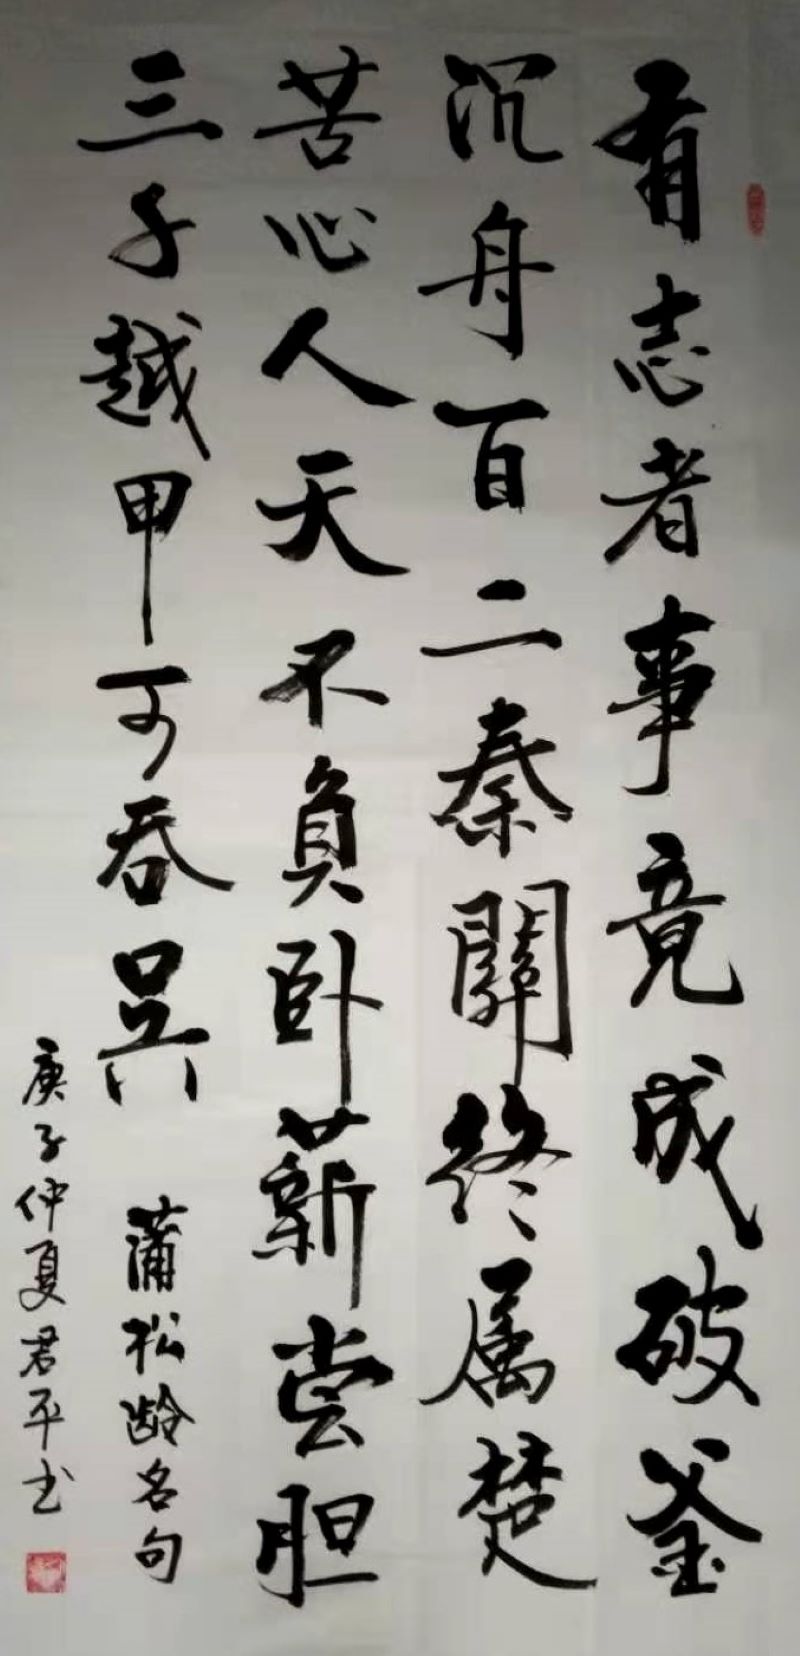 有志者事竟成破釜
沉舟百二秦關终属楚
苦心人天不負卧薪尝胆
三千越甲可吞吴
蒲松龄名句
庚子仲夏君平书